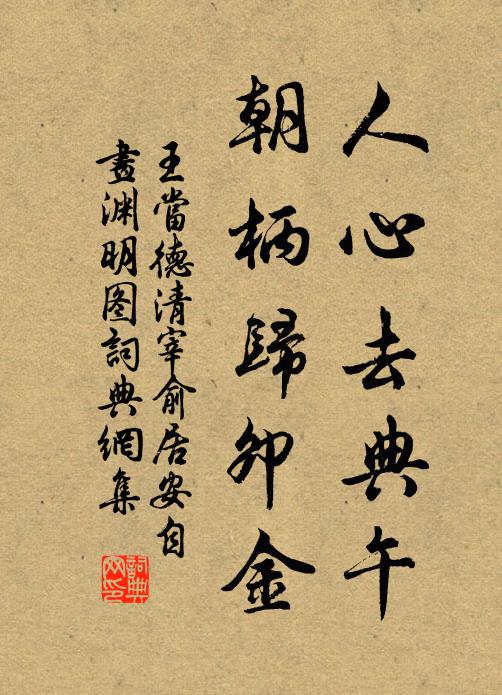 人心去典午
朝柄歸卯金
王當德清宰俞居安自
畫渊明图詞典網集
詞典网印